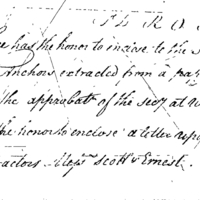 has the honor to inclose to the
Anchors extracted from a pa
the approbatn of the secy at w
the honor to enclose a letter
actors Messrs Scott & Ernest.